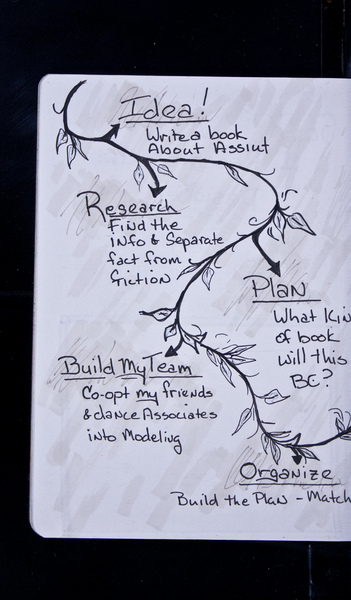 Idea!
Write a book
About Assiut
Research
Find the
info & Separate
fact from
fiction
Plan
What Kin
of book
will this
BE?
Build My Team
Co-opt my friends
& dance Associates
into Modeling
Organize
Build the Plan - Match